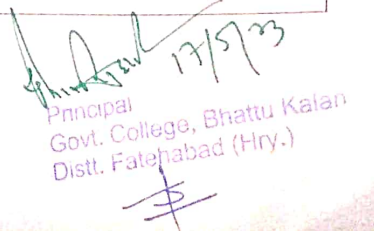 17/5/23
Principal
Govt. College, Bhattu Kalan
Distt. Fatehabad (Hry.)